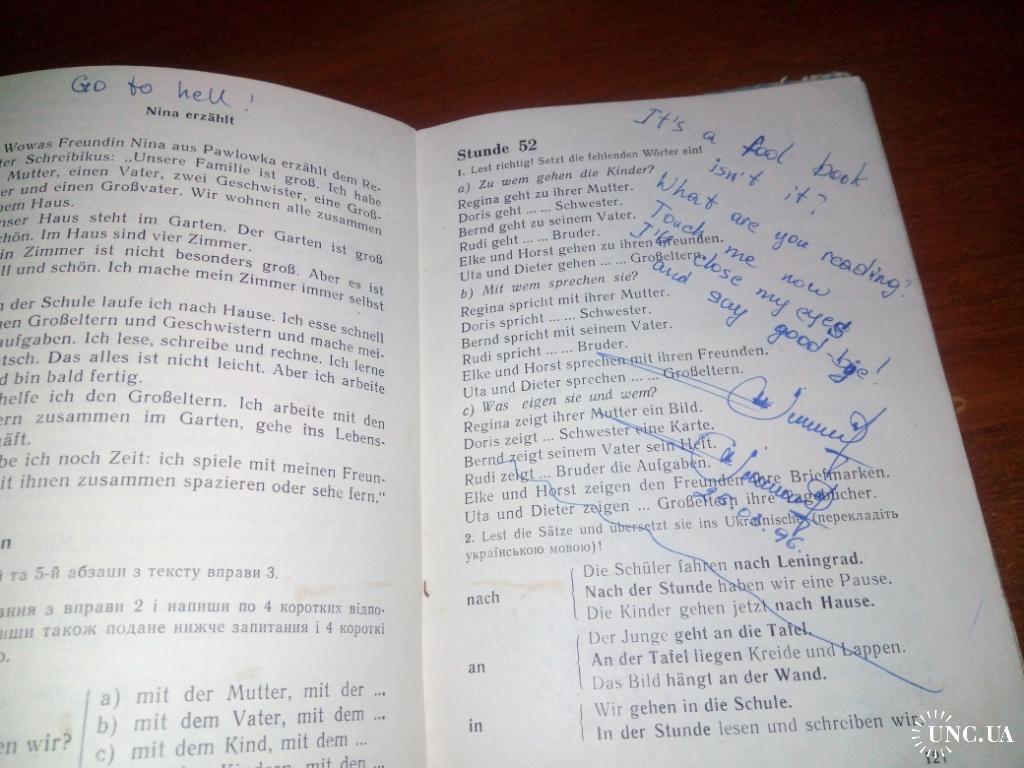 Go to hell!
Nina erzählt
Wowas Freundin Nina aus Pawlowka erzählt dem Re-
ter Schreibikus: „Unsere Familie ist groß. Ich habe
Mutter, einen Vater, zwei Geschwister, eine Groß-
er und einen Großvater. Wir wohnen alle zusammen
nem Haus.
nser Haus steht im Garten. Der Garten ist groß
chön. Im Haus sind vier Zimmer.
in Zimmer ist nicht besonders groß. Aber es ist
ll und schön. Ich mache mein Zimmer immer selbst
n der Schule laufe ich nach Hause. Ich esse schnell
nen Großeltern und Geschwistern und mache mei-
aufgaben. Ich lese, schreibe und rechne. Ich lerne
tsch. Das alles ist nicht leicht. Aber ich arbeite
d bin bald fertig.
helfe ich den Großeltern. Ich arbeite mit den
ern zusammen im Garten, gehe ins Lebens-
häft.
be ich noch Zeit: ich spiele mit meinen Freun-
it ihnen zusammen spazieren oder sehe fern."
en
й та 5-й абзаци з тексту вправи 3.
ання з вправи 2 і напиши по 4 коротких відпо-
иши також подане нижче запитання і 4 короткі
о.
en wir?
a) mit der Mutter, mit der ...
b) mit dem Vater, mit dem ...
c) mit dem Kind, mit dem ...
Stunde 52
1. Lest richtig! Setzt die fehlenden Wörter ein!
a) Zu wem gehen die Kinder?
Regina geht zu ihrer Mutter.
Doris geht ... ... Schwester.
Bernd geht zu seinem Vater.
Rudi geht ... ... Bruder.
Elke und Horst gehen zu ihren Freunden.
Uta und Dieter gehen ... ... Großeltern.
b) Mit wem sprechen sie?
Regina spricht mit ihrer Mutter.
Doris spricht ... ... Schwester.
Bernd spricht mit seinem Vater.
Rudi spricht ... ... Bruder.
Elke und Horst sprechen mit ihren Freunden.
Uta und Dieter sprechen ... ... Großeltern.
c) Was eigen sie und wem?
Regina zeigt ihrer Mutter ein Bild.
Doris zeigt ... Schwester eine Karte.
Bernd zeigt seinem Vater sein Heft.
Rudi zeigt ... Bruder die Aufgaben.
Elke und Horst zeigen den Freunden ihre Briefmarken.
Uta und Dieter zeigen ... Großeltern ihre Tagebücher.
2. Lest die Sätze und übersetzt sie ins Ukrainische (перекладіть
українською мовою)!
nach
Die Schüler fahren nach Leningrad.
Nach der Stunde haben wir eine Pause.
Die Kinder gehen jetzt nach Hause.
an
Der Junge geht an die Tafel.
An der Tafel liegen Kreide und Lappen.
Das Bild hängt an der Wand.
in
Wir gehen in die Schule.
In der Stunde lesen und schreiben wir.
121
It's a fool book
isn't it?
What are you reading?
Touch me now
I'll close my eyes
and say good-bye!
26.03.96.
UNC.UA